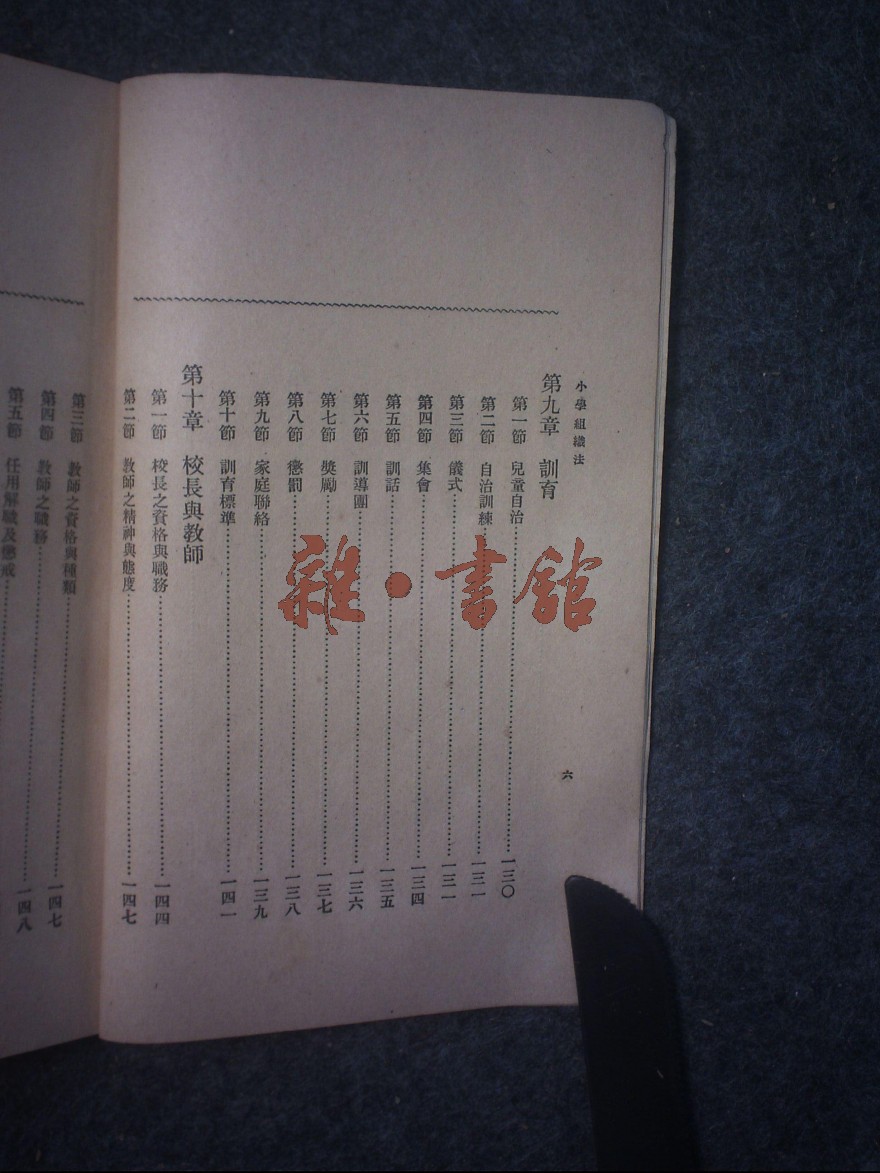 小學組織法
六
第九章 訓育
第一節 兒童自治 一三〇
第二節 自治訓練 一三一
第三節 儀式 一三一
第四節 集會 一三四
第五節 訓話 一三五
第六節 訓導團 一三六
第七節 獎勵 一三七
第八節 懲罰 一三八
第九節 家庭聯絡 一三九
第十節 訓育標準 一四一
第十章 校長與教師
第一節 校長之資格與職務 一四四
第二節 教師之精神與態度 一四七
第三節 教師之資格與種類
第四節 教師之職務 一四七
第五節 任用解職及懲戒 一四八
雜·書館